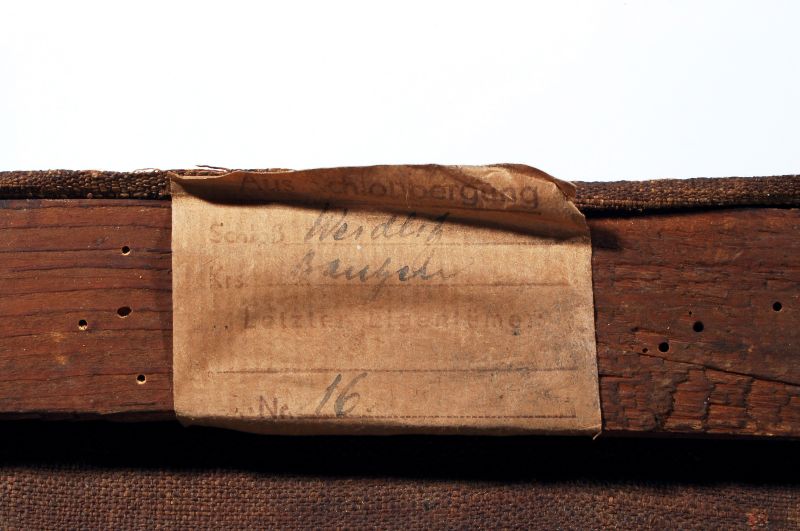 Aus Schloßbergung
Schloß Weidlitz
Krs. Bautzen
Letzter Eigentümer
Nr. 16.